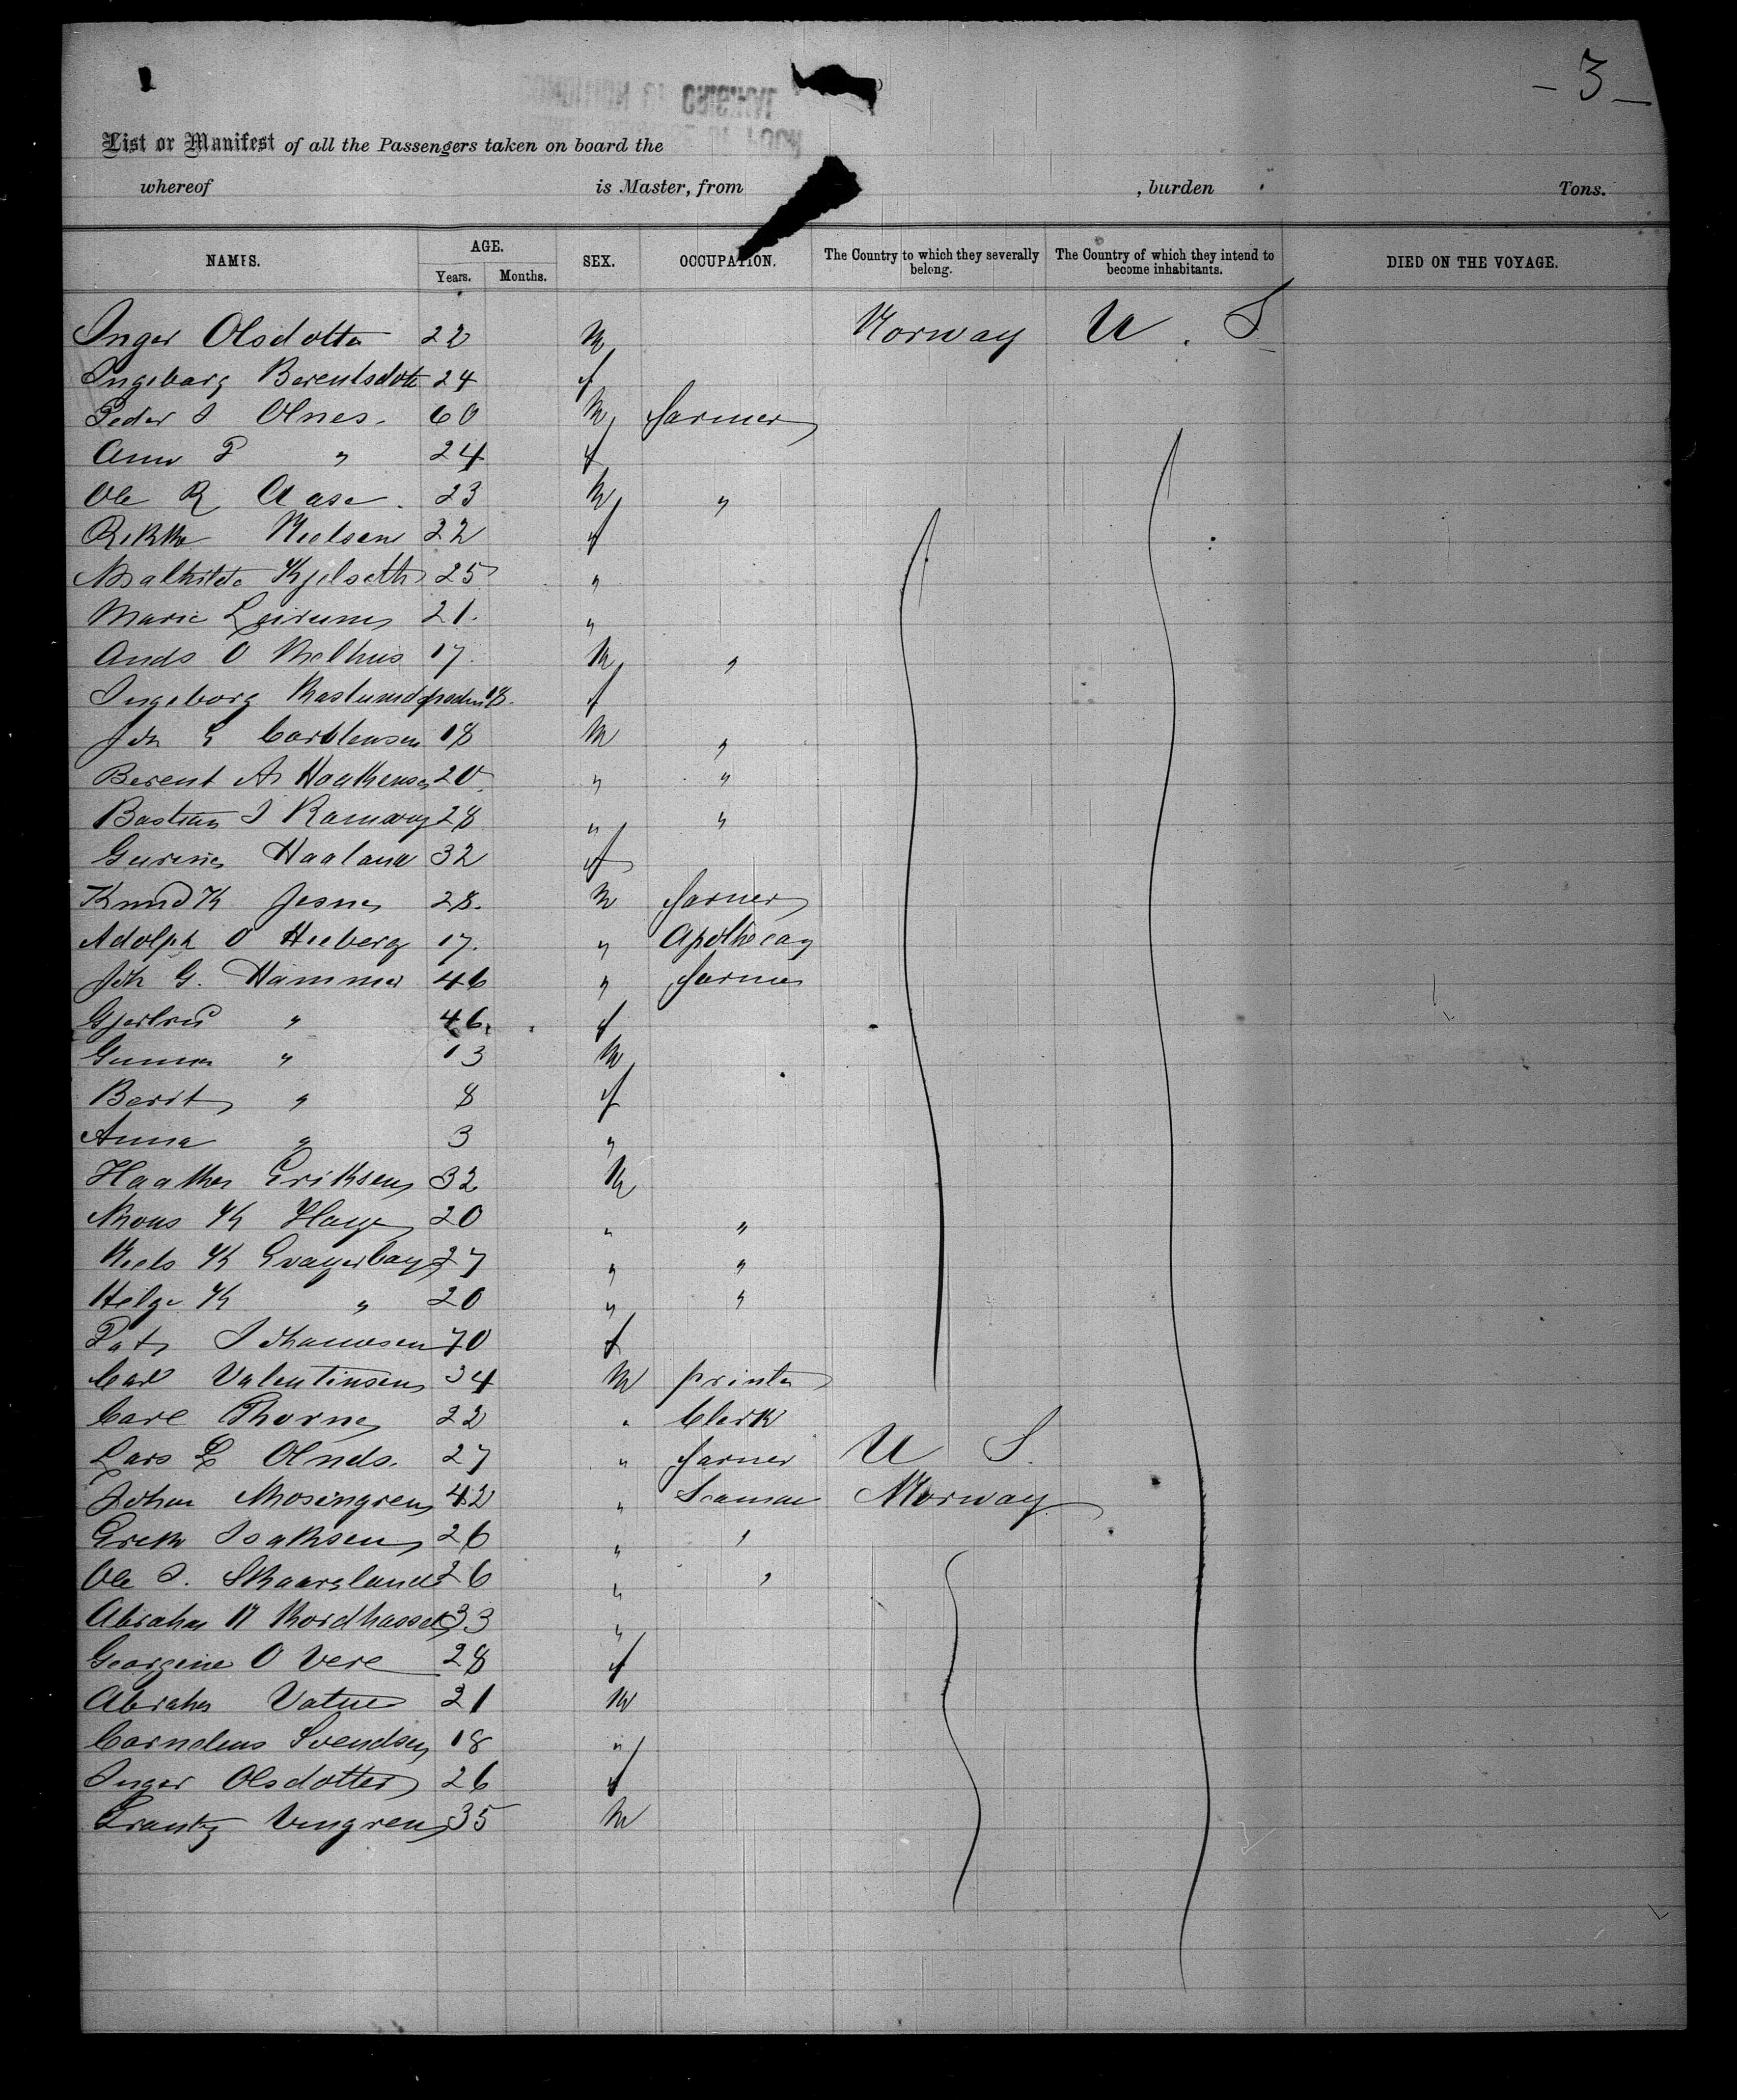 - 3 -
CONDITION OF ORIGINAL
List or Manifest of all the Passengers taken on board the
whereof is Master, from , burden Tons.
NAMES. AGE. Years. Months. SEX. OCCUPATION. The Country to which they severally belong. The Country of which they intend to become inhabitants. DIED ON THE VOYAGE.
Inger Olsdotter 22 M Norway U. S
Ingeborg Berentsdotr 24 f
Peder I Olnes. 60 M farmer
Anna P " 24 f
Ole R Aase. 23 M "
Nielsen 22 f
Mathilde Kjelseth 25 "
Marie 21. "
Ands O Melhus 17. M "
Ingeborg 18. f
Joh G 18 M "
Berent A Haakensen 20 " "
Bastian I 28 " "
Haaland 32 f
Knud K Jesnes 28. M farmer
Adolph O Heeberg 17. " Apothecay
Joh G. Hammer 46 " farmer
Gjertrud " 46. f
Gunnar " 13 M
Berit " 8 f
Anna " 3 "
Haaken Eriksen 32 M
Mons K 20 " "
Niels K 27 " "
Helge K " 20 " "
Johannesen 70 f
Carl Valentinsen 34 M printer
Carl Thorne 22 " Clerk
Lars L Olnds. 27 " farmer U S.
Johan 42 " Seaman Norway
Erik Isaksen 26 " "
Ole I. Skaarsland 26 " "
Abraham 33 "
Georgine O Vere 28 f
Abraham Vatne 21 M
Cornelius Svendsen 18 "
Inger Olsdotter 26 f
Frantz 35 M